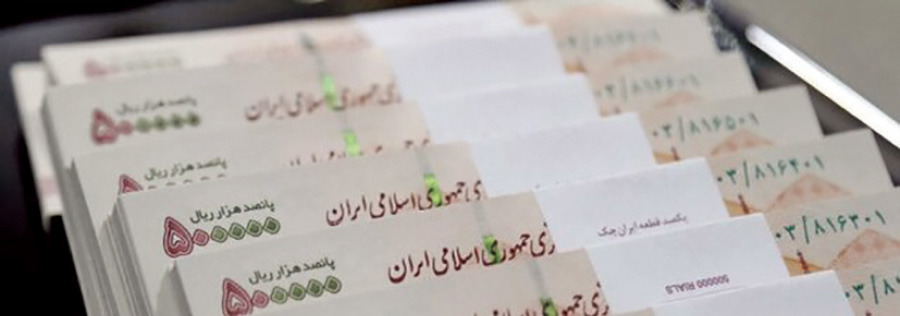 پانصد هزار ریال
۵۰۰۰۰۰
جمهوری اسلامی ایران
۰۳/۸۱۶۶۰۱
پانصد هزار ریال
۰۳/۸۱۶۵۰۱
پانصد هزار ریال
۵۰۰۰۰۰
جمهوری اسلامی ایران
۰۳/۸۱۶۴۰۱
یکصد قطعه ایران چک
پانصد هزار ریال
۵۰۰۰۰۰
جمهوری اسلامی ایران
۰۳/۸۱۶۳۰۱
500000 RIALS